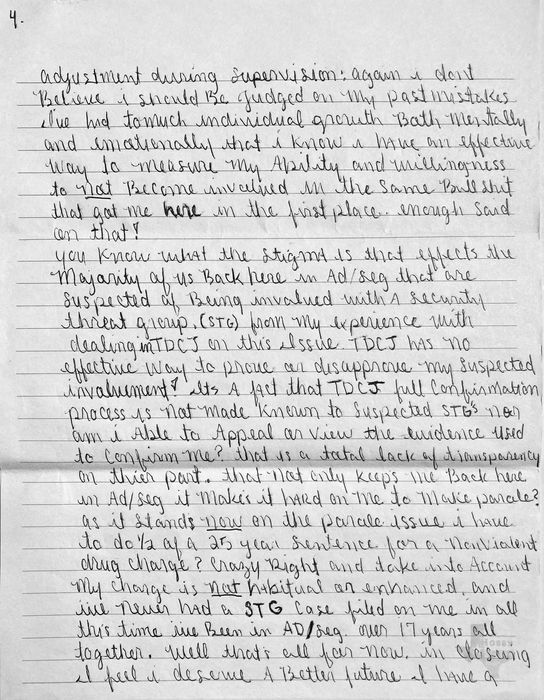 4.
adjustment during supervision: again i dont
Believe i should Be judged on my past mistakes
I've had to much individual growth Both Mentally
and emotionally that i know i HAve an effective
way to measure My Ability and willingness
to not Become involved in the same Bullshit
that got me here in the first place. enough said
on that!
you know what the stigma is that effects the
Majority of us Back here in Ad/seg that are
Suspected of Being involved with A Security
threat group. (STG) from my experience with
dealing in TDCJ on this issue TDCJ has no
effective way to prove or disapprove my suspected
involvement! Its A fact that TDCJ full Confirmation
process is not made known to suspected STG's nor
am i Able to Appeal or view the evidence used
to Confirm me? that is a total lack of transparency
on thier part. that not only keeps me Back here
in Ad/seg it Makes it hARd on me to Make parole?
as it stands now on the parole issue i have
to do 1/2 of a 25 year sentence for a NonViolent
drug charge? Crazy Right and take into Account
My charge is not habitual or enhanced, and
ive never had a STG Case filed on me in all
this time ive Been in AD/seg. over 17 years all
together. Well that's all for now. in closing
I feel i deserve A Better future I have a